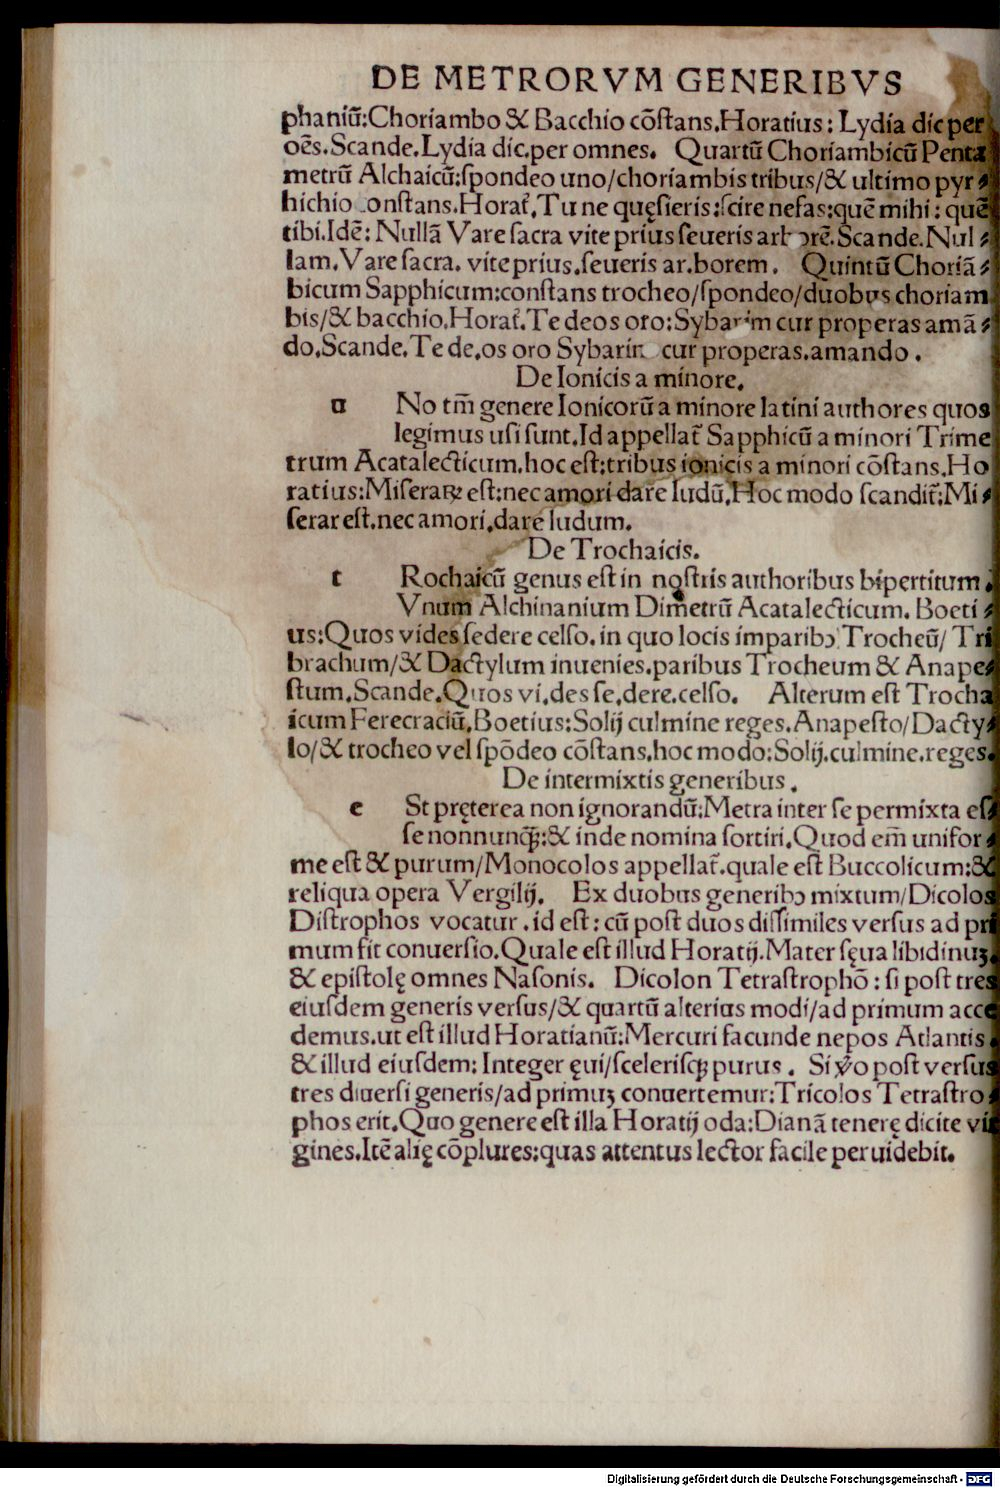 DE METRORVM GENERIBVS
phaniū:Choriambo & Bacchio cōſtans.Horatius: Lydia dic per
oēs.Scande.Lydia dic.per omnes. Quartū Choriambicū Penta
metrū Alchaicū:ſpondeo uno/choriambis tribus/& ultimo pyr⸗
hichio onſtans.Horat̄.Tu ne quęſieris:ſcire nefas:quē mihi: quē
tibi.Idē: Nullā Vare ſacra vite prius ſeueris arborē.Scande.Nul⸗
lam.Vare ſacra. vite prius.ſeueris ar.borem. Quintū Choriā⸗
bicum Sapphicum:conſtans trocheo/ſpondeo/duobus choriam
bis/& bacchio.Horat̄.Te deos oro:Sybarim cur properas amā⸗
do.Scande.Te de.os oro Sybarim cur properas.amando.
De Ionicis a minore.
u No tm̄ genere Ionicorū a minore latini authores quos
legimus uſi ſunt.Id appellat̄ Sapphicū a minori Trime
trum Acatalecticum.hoc eſt:tribus ionicis a minori cōſtans.Ho
ratius:Miseraꝝ eſt:nec amori dare ludū.Hoc modo ſcandit̄:Mi⸗
ſerar eſt.nec amori.dare ludum.
De Trochaicis.
t Rochaicū genus eſt in noſtris authoribus bipertitum.
Vnum Alchinanium Dimetrū Acatalecticum. Boeti⸗
us:Quos vides ſedere celſo.in quo locis imparibꝰ Trocheū/ Tri
brachum/& Dactylum inuenies.paribus Trocheum & Anape⸗
ſtum.Scande.Quos vi.des ſe.dere.celſo. Alterum eſt Trocha
icum Ferecraciū.Boetius:Solij culmine reges.Anapeſto/Dacty⸗
lo/& trocheo vel ſpōdeo cōſtans.hoc modo:Solij.culmine.reges.
De intermixtis generibus.
e St pręterea non ignorandū:Metra inter ſe permixta eſ⸗
ſe nonnunꝗ̃:& inde nomina ſortiri.Quod em̄ unifor⸗
me eſt & purum/Monocolos appellat̄.quale eſt Buccolicum:&
reliqua opera Vergilij. Ex duobus generibꝰ mixtum/Dicolos
Diſtrophos vocatur.id eſt: cū poſt duos diſſimiles verſus ad pri
mum fit conuerſio.Quale eſt illud Horatij.Mater ſęua libidinuꝫ.
& epiſtolę omnes Naſonis. Dicolon Tetraſtrophō: ſi poſt tres
eiuſdem generis verſus/& quartū alterius modi/ad primum acce
demus.ut eſt illud Horatianū:Mercuri facunde nepos Atlantis.
& illud eiuſdem: Integer ęui/ſceleriſqꝫ purus. Si ṽo poſt verſus
tres diuerſi generis/ad primuꝫ conuertemur:Tricolos Tetraſtro⸗
phos erit.Quo genere eſt illa Horatij oda:Dianā tenerę dicite vir
gines.Itē alię cōplures:quas attentus lector facile peruidebit.
Digitalisierung gefördert durch die Deutsche Forschungsgemeinschaft - DFG